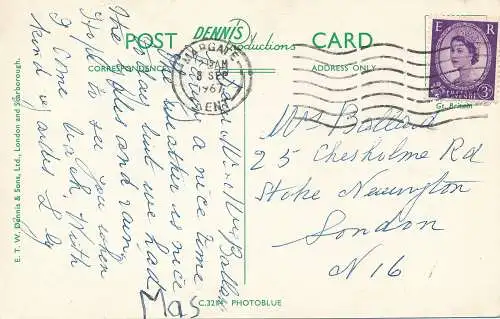 POST DENNIS Productions CARD
CORRESPONDENCE
ADDRESS ONLY
MARGATE
AM
8 SEP
1967
KENT
E R
POSTAGE REVENUE
3D
Gt. Britain
Dear Mr & Mrs Ballard
a nice time
the weather is nice
to day but we had
The and rain
Hope to see you when
I come back, With
kind regards Lily
Mrs Ballard
25 Chesholme Rd
Stoke Newington
London
N16
E. T. W. Dennis & Sons, Ltd., London and Scarborough.
PHOTOBLUE